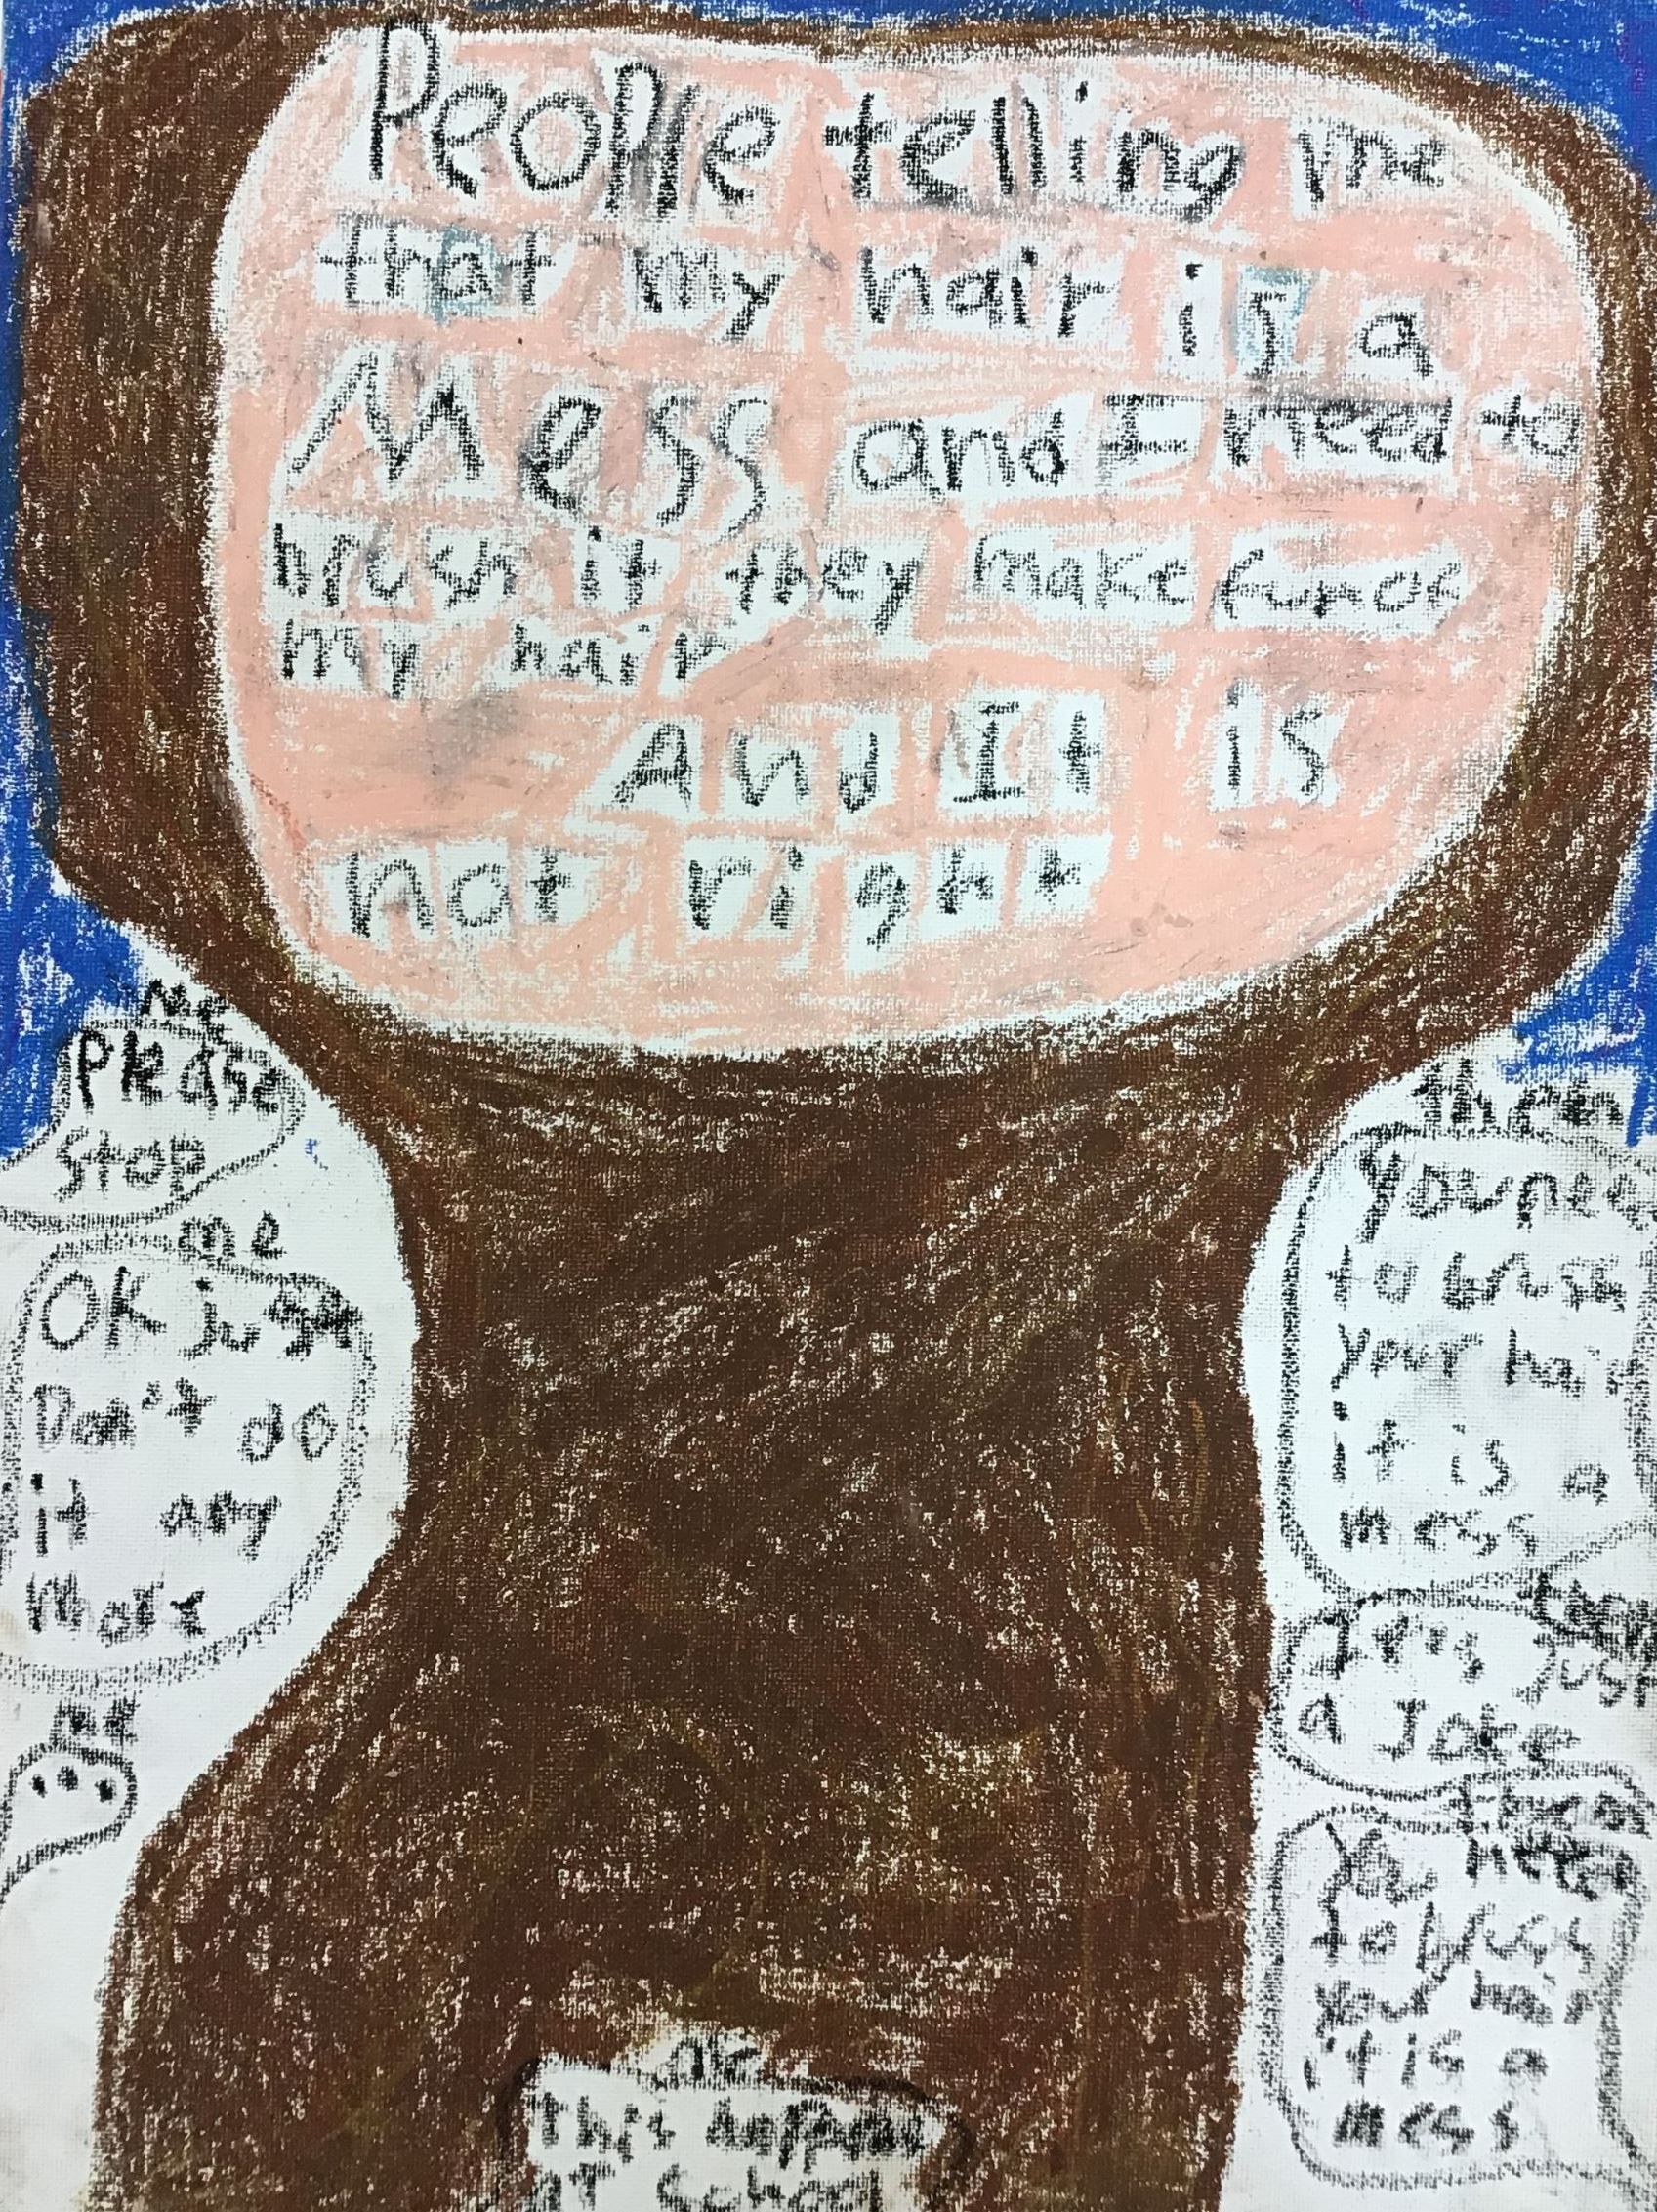 People telling me
that my hair is a
Mess and I need to
brush it they make fun of
my hair
And It is
not right
me
Please
stop
me
OK just
Don't do
it any
more
me
...
them
you need
to brush
your hair
it is a
mess
it is
a Joke
You
to brush
your hair
it is a
mess
This happens
at school